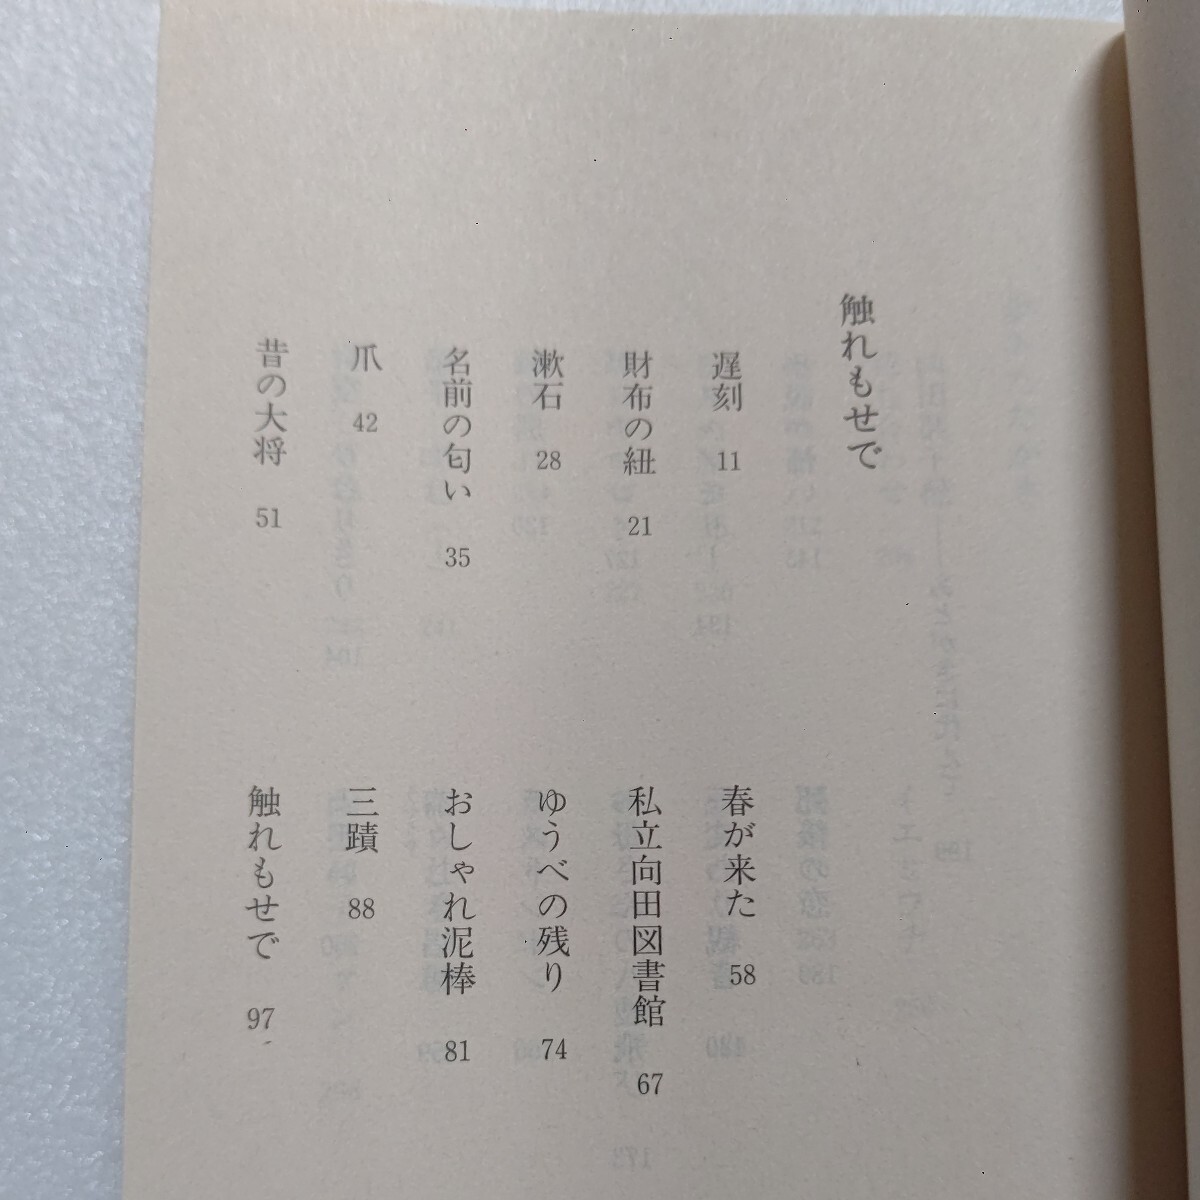 触れもせで
遅刻 11
財布の紐 21
漱石 28
名前の匂い 35
爪 42
昔の大将 51
春が来た 58
私立向田図書館 67
ゆうべの残り 74
おしゃれ泥棒 81
三蹟 88
触れもせで 97